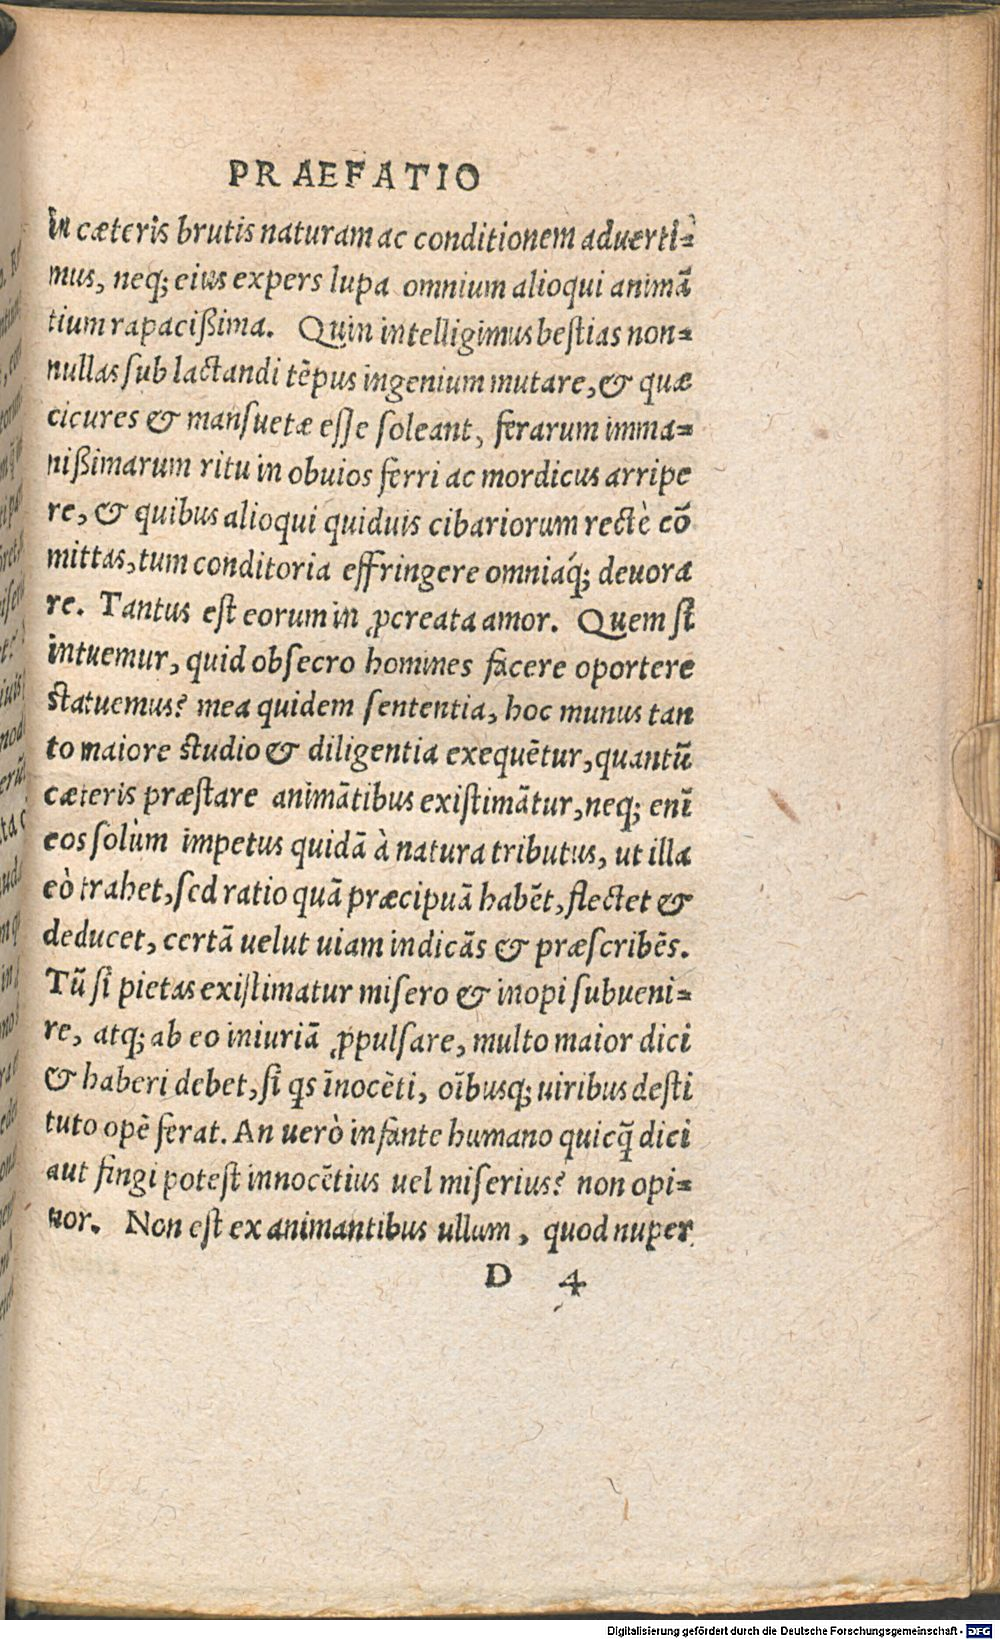 PRAEFATIO
In cæteris brutis naturam ac conditionem aduerti-
mus, neq; eius expers lupa omnium alioqui animã
tium rapacißima. Quin intelligimus bestias non-
nullas sub lactandi tẽpus ingenium mutare, & quæ
cicures & mansuetæ esse soleant, ferarum imma-
nißimarum ritu in obuios ferri ac mordicus arripe
re, & quibus alioqui quiduis cibariorum rectè cõ
mittas, tum conditoria effringere omniaq́; deuora
re. Tantus est eorum in ꝓcreata amor. Quem si
intuemur, quid obsecro homines facere oportere
statuemus? mea quidem sententia, hoc munus tan
to maiore studio & diligentia exequẽtur, quantũ
cæteris præstare animãtibus existimãtur, neq; enĩ
eos solùm impetus quidã à natura tributus, ut illa
eò trahet, sed ratio quã præcipuã habẽt, flectet &
deducet, certã uelut uiam indicãs & præscribẽs.
Tũ si pietas existimatur misero & inopi subueni-
re, atq; ab eo iniuriã ꝓpulsare, multo maior dici
& haberi debet, si qs ĩnocẽti, oĩbusq; uiribus desti
tuto opẽ ferat. An uerò infante humano quicq̃ dici
aut fingi potest innocẽtius uel miserius? non opi-
nor. Non est ex animantibus ullum, quod nuper
D 4
Digitalisierung gefördert durch die Deutsche Forschungsgemeinschaft - DFG